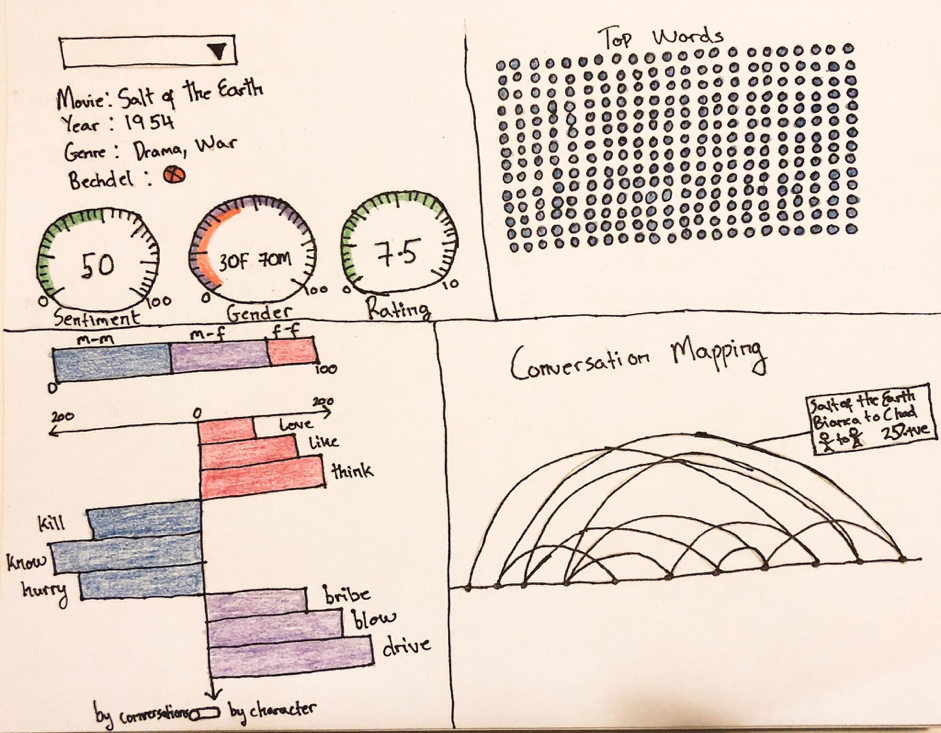 Movie: Salt of the Earth
Year : 1954
Genre : Drama, War
Bechdel :
50
0 100
Sentiment
30F 70M
0 100
Gender
7.5
0 10
Rating
Top Words
m-m m-f f-f
0 100
200 0 200
love
like
think
kill
know
hurry
bribe
blow
drive
by conversations by character
Conversation Mapping
Salt of the Earth
Bianca to Chad
to 25%+ve